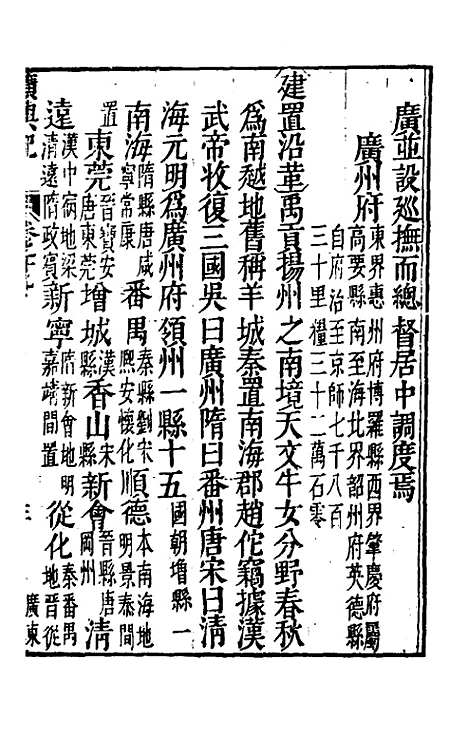 廣並設廵撫而總督居中調度焉
廣州府東界惠州府博羅縣西界肇慶府屬高要縣南至海北界韶州府英德縣自府治至京師七千八百三十里糧三十二萬石零
建置沿革禹貢揚州之南境天文牛女分野春秋
爲南越地舊稱羊城秦置南海郡趙佗竊據漢
武帝收復三國吳曰廣州隋曰番州唐宋曰清
海元明爲廣州府領州一縣十五國朝增縣一
南海隋縣唐咸寧常康番禺秦縣劉宋熙安懷化順德本南海地明景泰間
置東莞晉寶安唐東莞增城漢縣香山宋縣新會晉縣唐岡州清
遠漢中宿地梁清遠隋政賓新寧隋新會地明嘉靖間置從化秦番禺地晉從
廣輿記 卷之十九 三 廣東